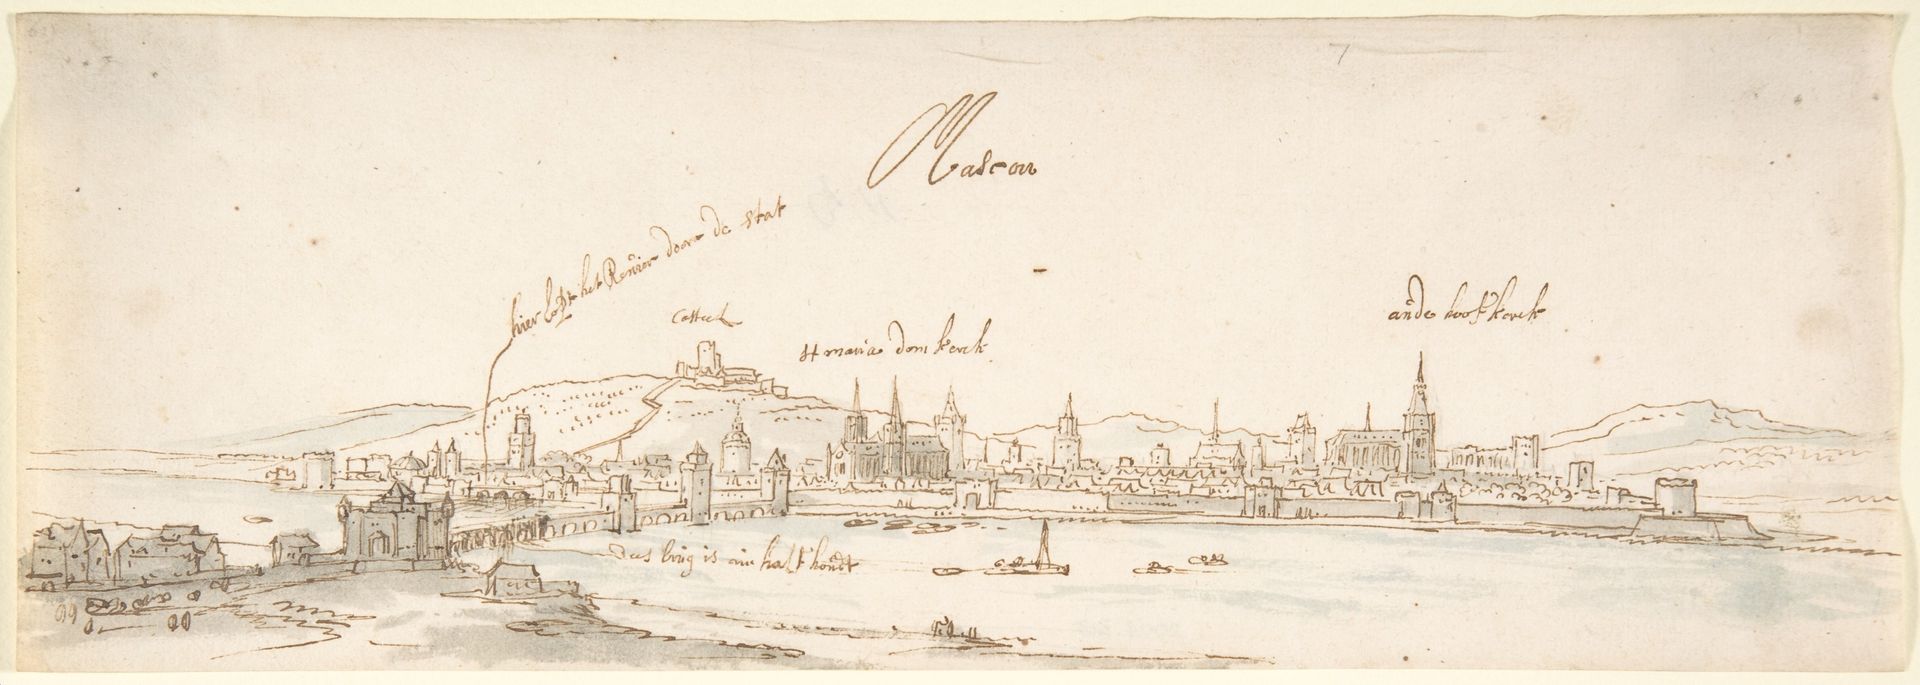 Mascon
hier lopt het Reuier door de stat
Casteel
St maria dom kerck
ande hooft kerck
Das brug is ein half hondt